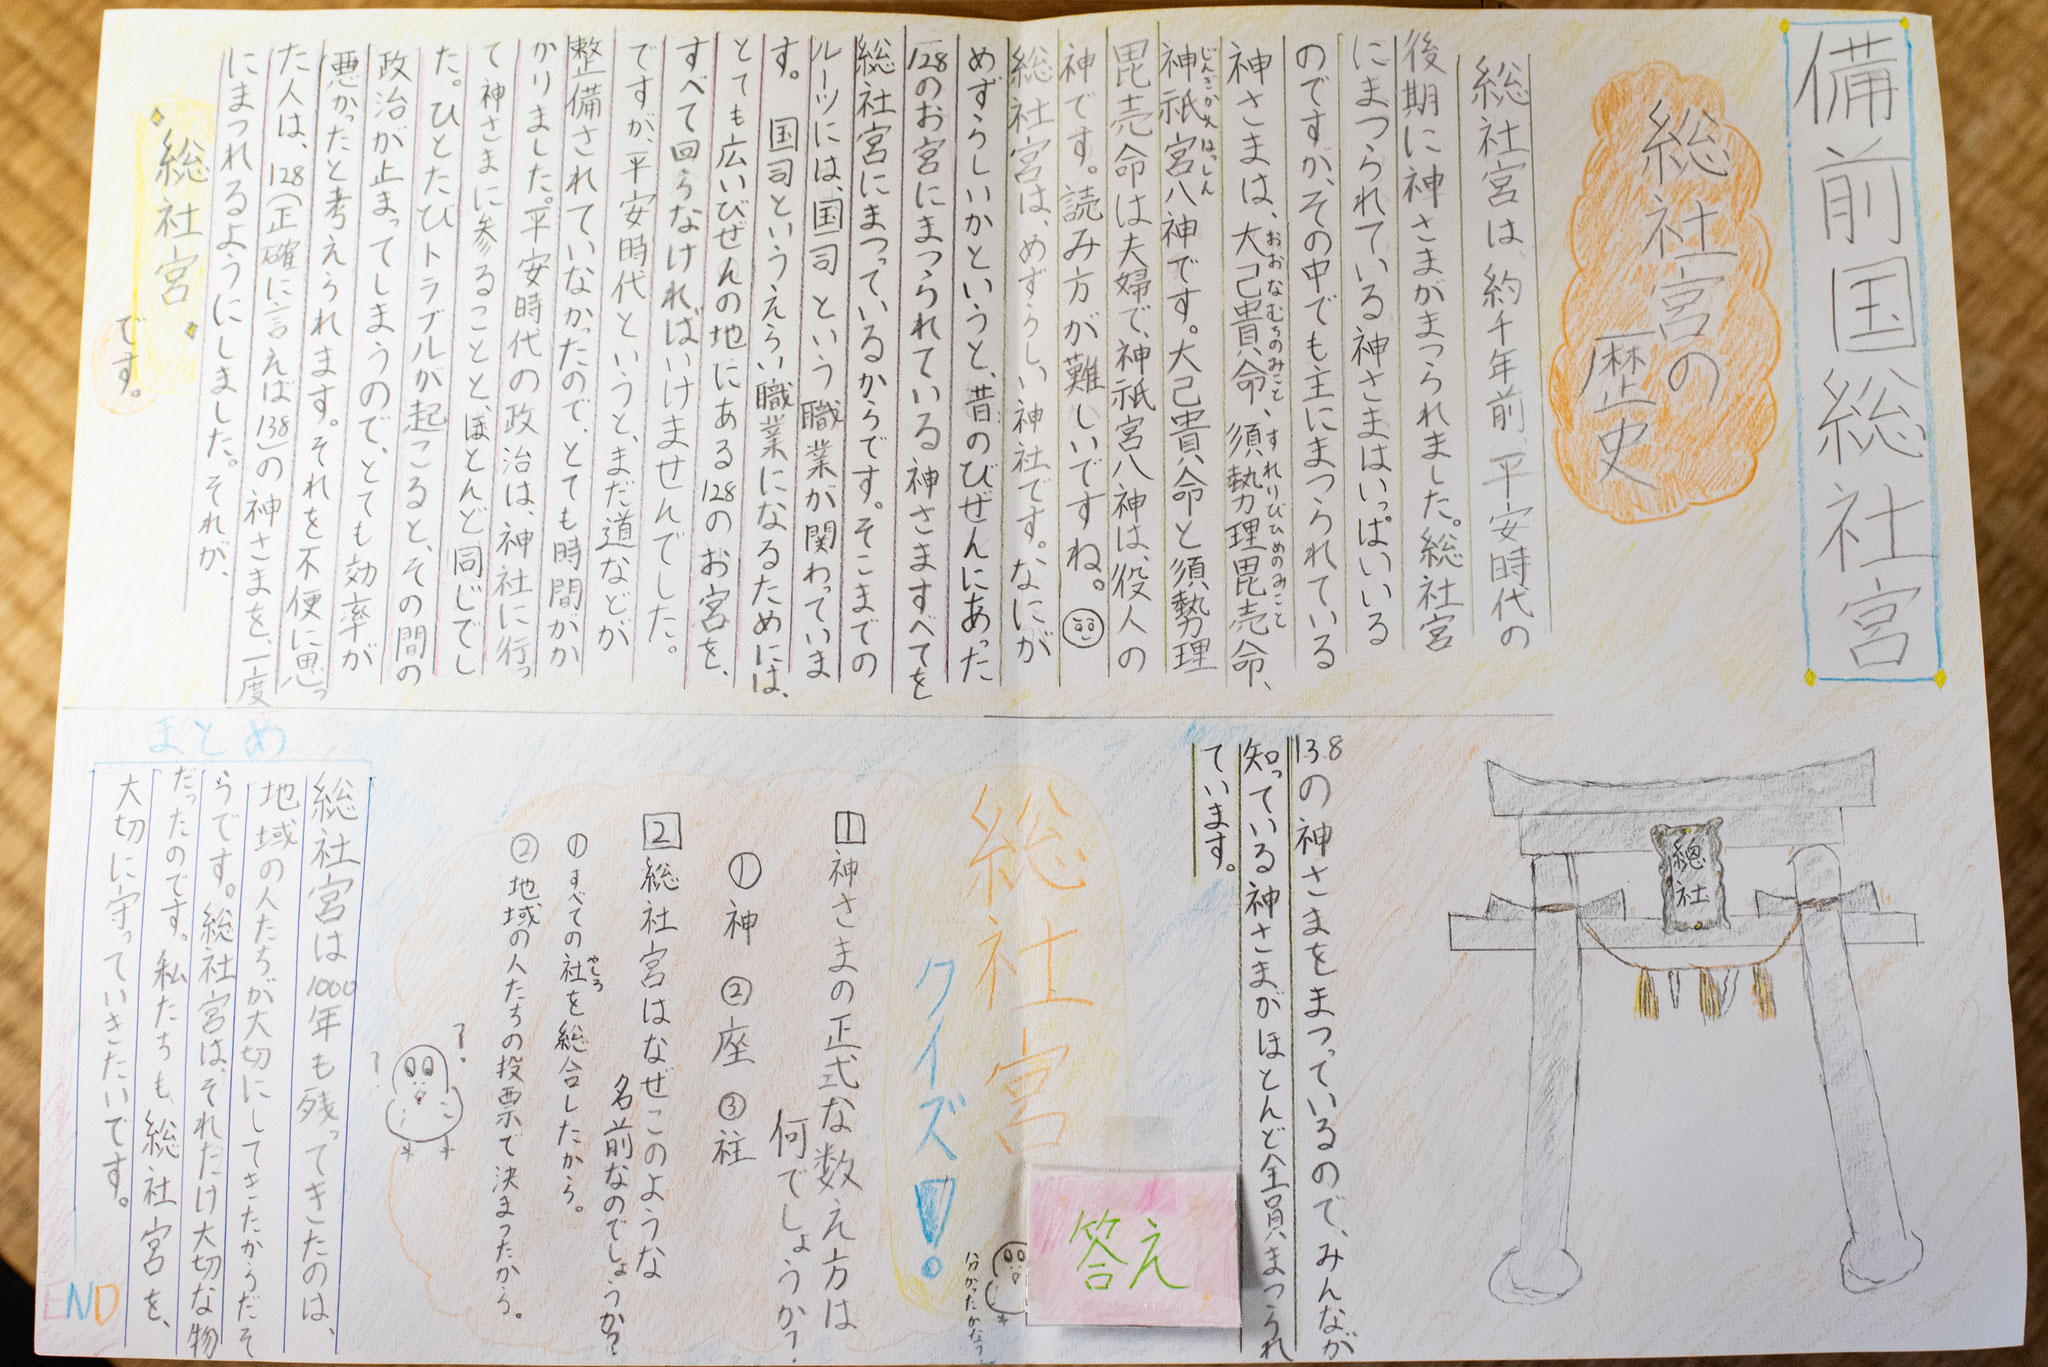 備前国総社宮
総社宮の
歴史
総社宮は、約千年前、平安時代の
後期に神さまがまつられました。総社宮
にまつられている神さまはいっぱいいる
のですが、その中でも主にまつられている
神さまは、大己貴命、須勢理毘売命、
おおなむちのみこと
すせりびひめのみこと
神祇宮八神です。大己貴命と須勢理
じんぎかんはっしん
毘売命は夫婦で、神祇宮八神は、役人の
神です。読み方が難しいですね。
総社宮は、めずらしい神社です。なにが
めずらしいかというと、昔のびぜんにあった
128のお宮にまつられている神さますべてを
総社宮にまつっているからです。そこまでの
ルーツには、国司という職業が関わっていま
す。国司というえらい職業になるためには、
とても広いびぜんの地にある128のお宮を、
すべて回らなければいけませんでした。
ですが、平安時代というと、まだ道などが
整備されていなかったので、とても時間がか
かりました。平安時代の政治は、神社に行っ
て神さまに参ることと、ほとんど同じでし
た。ひとたびトラブルが起こると、その間の
政治が止まってしまうので、とても効率が
悪かったと考えられます。それを不便に思っ
た人は、128(正確に言えば138)の神さまを、一度
にまつれるようにしました。それが、
総社宮
です。
總社
138の神さまをまつっているので、みんなが
知っている神さまがほとんど全員まつられ
ています。
総社宮
クイズ!
分かったかな?
答え
1 神さまの正式な数え方は
何でしょうか?
①神 ②座 ③柱
2 総社宮はなぜこのような
名前なのでしょうか?
①すべての社を総合したから。
やしろ
②地域の人たちの投票で決まったから。
?
?
まとめ
総社宮は1000年も残ってきたのは、
地域の人たちが大切にしてきたからだそ
うです。総社宮は、それだけ大切な物
だったのです。私たちも、総社宮を、
大切に守っていきたいです。
END